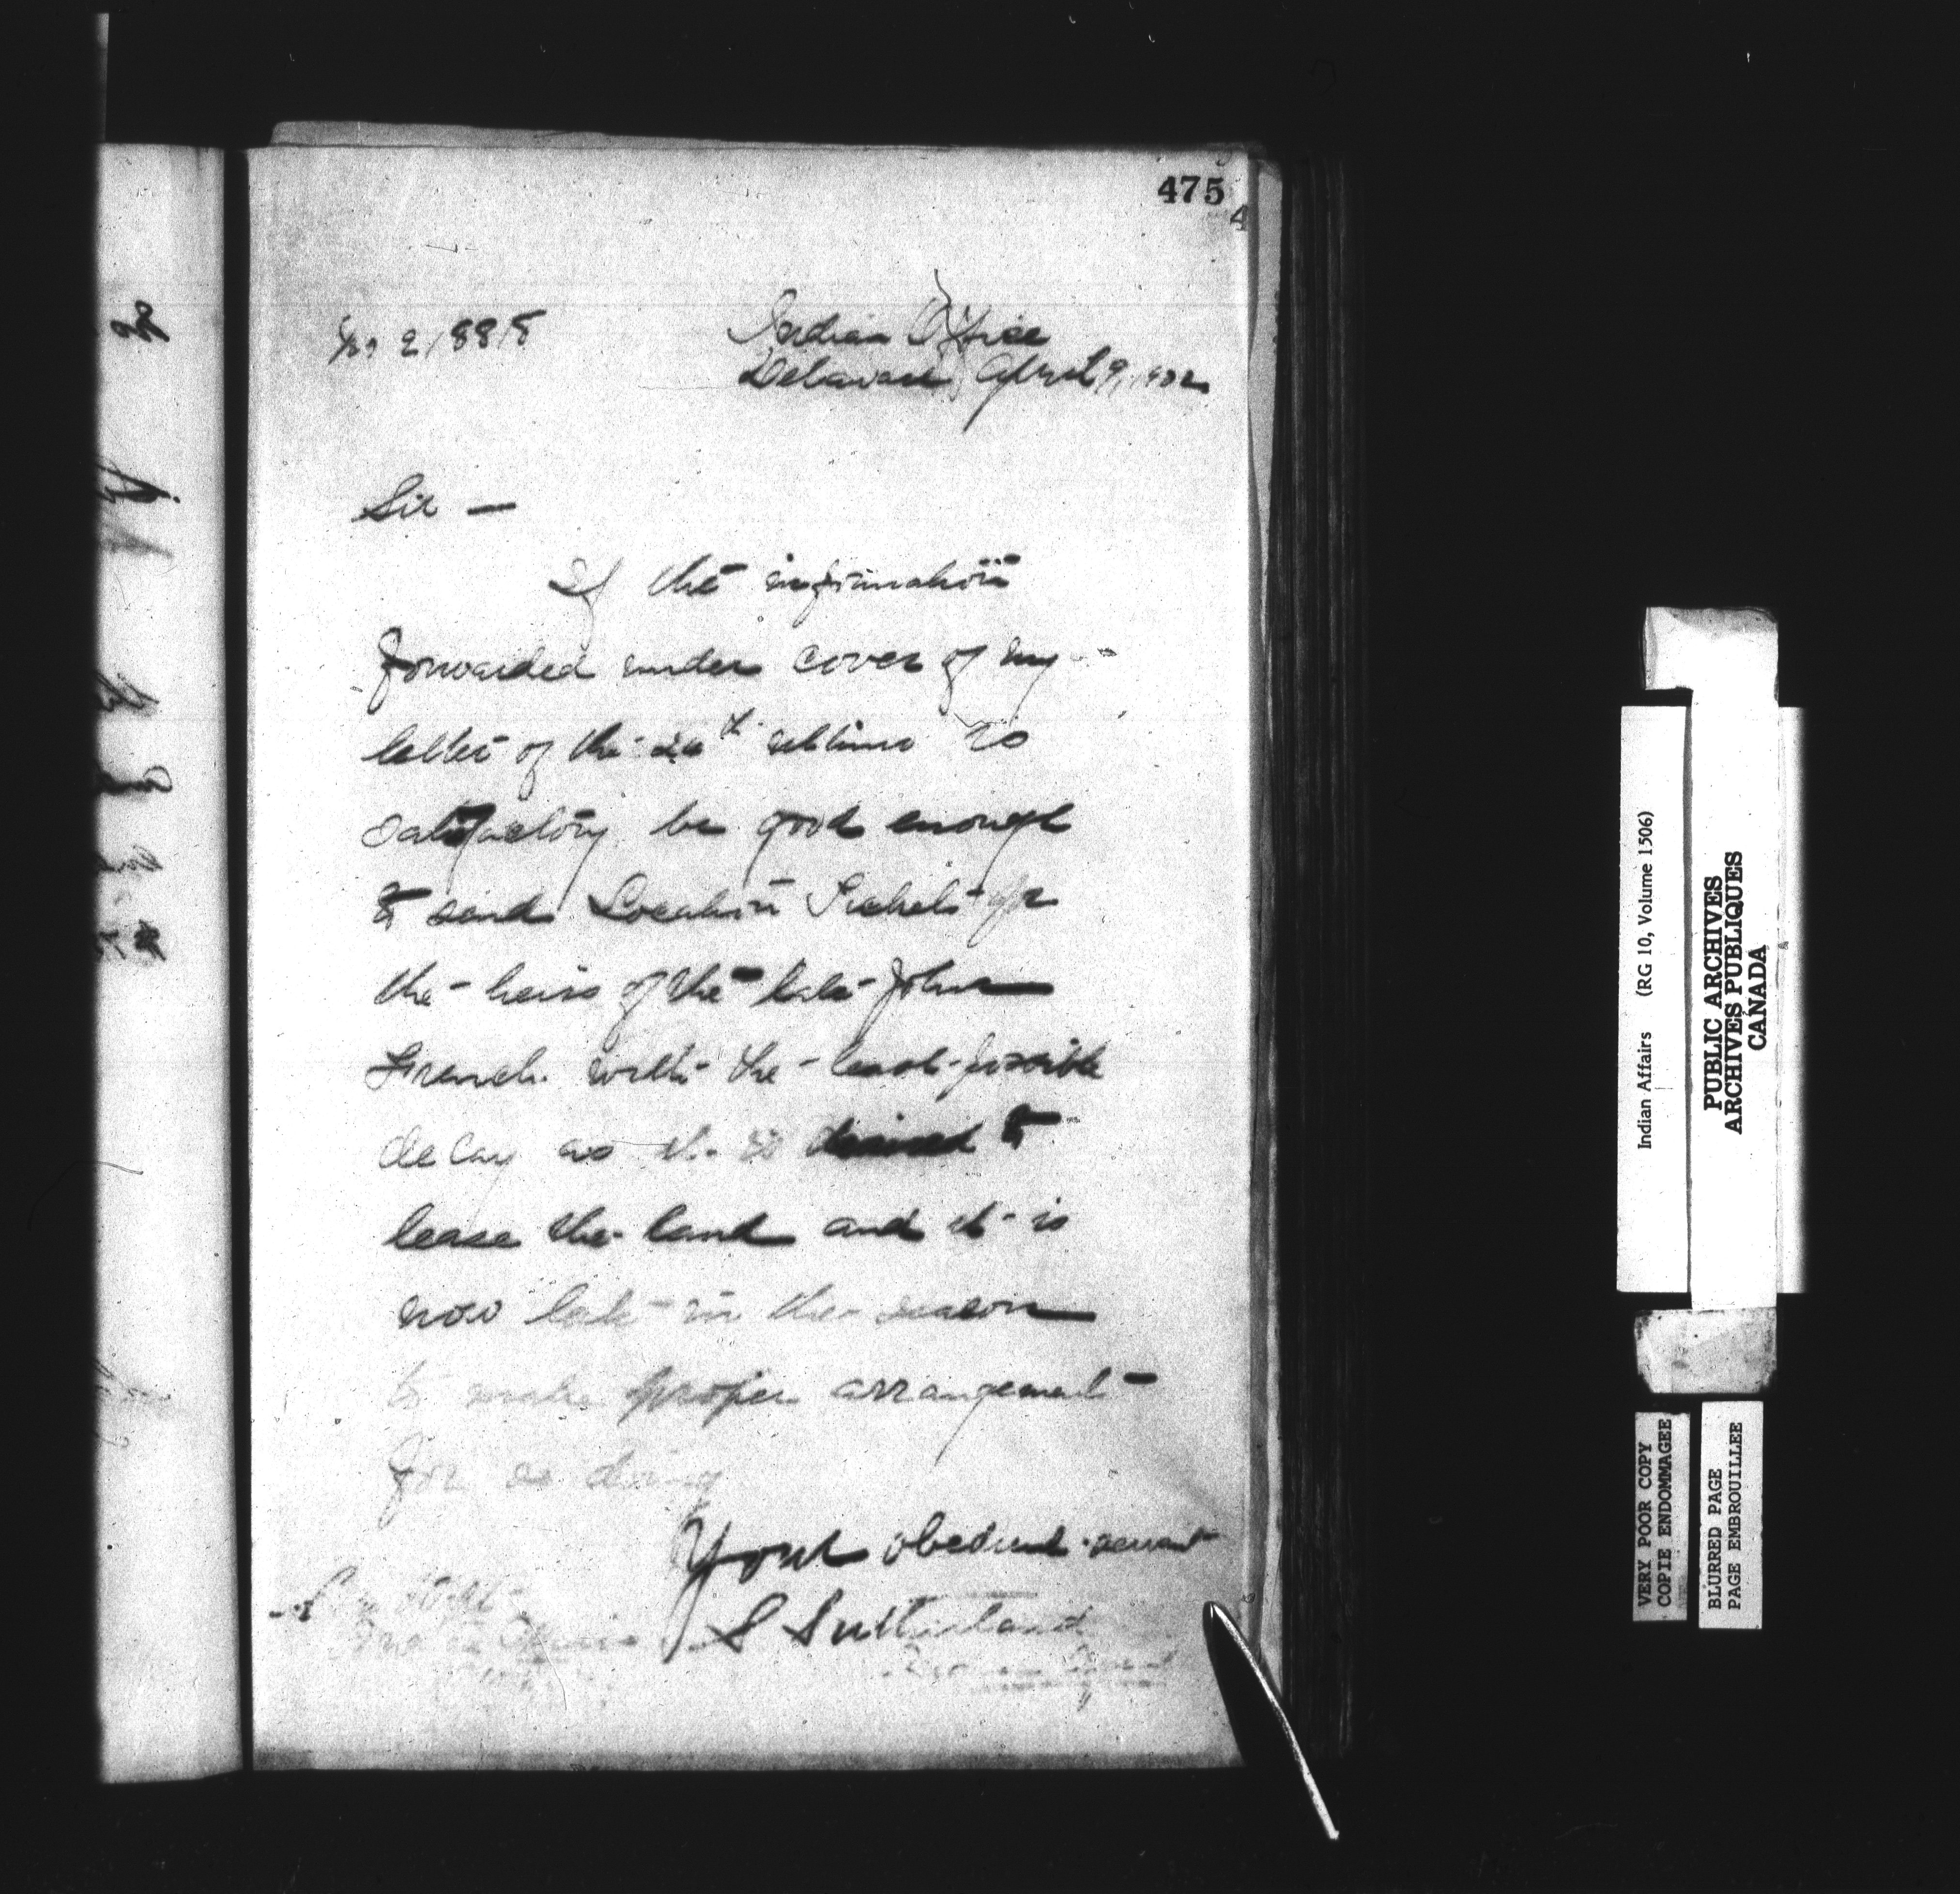 475
Indian Office
Delaware April 9, 1902
Sir —
If the information
forwarded under cover of my
letter of the ultimo is
satisfactory be good enough
to send Location Tickets for
the heirs of the late John
French with the least possible
delay as it is desired to
lease the land and it is
now late in the season
to make proper arrangement
for so doing
Your obedient servant
S Sutherland
Indian Affairs (RG 10, Volume 1506)
PUBLIC ARCHIVES
ARCHIVES PUBLIQUES
CANADA
VERY POOR COPY
COPIE ENDOMMAGEE
BLURRED PAGE
PAGE EMBROUILLEE